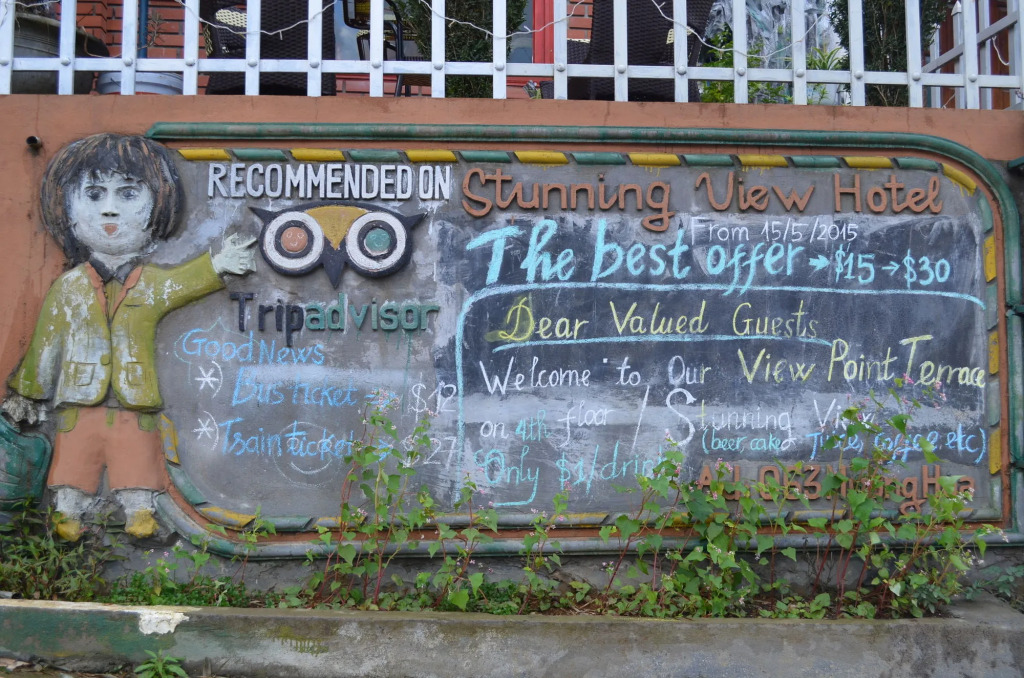 RECOMMENDED ON
Tripadvisor
Good News
Bus ticket → $12
Train ticket → $27
Stunning View Hotel
From 15/5/2015
The best offer → $15 → $30
Dear Valued Guests
Welcome to Our View Point Terrace
on 4th floor / Stunning View
(beer, cake, Juice, coffee, etc)
Only $1/drink
063 Hoang Hoa